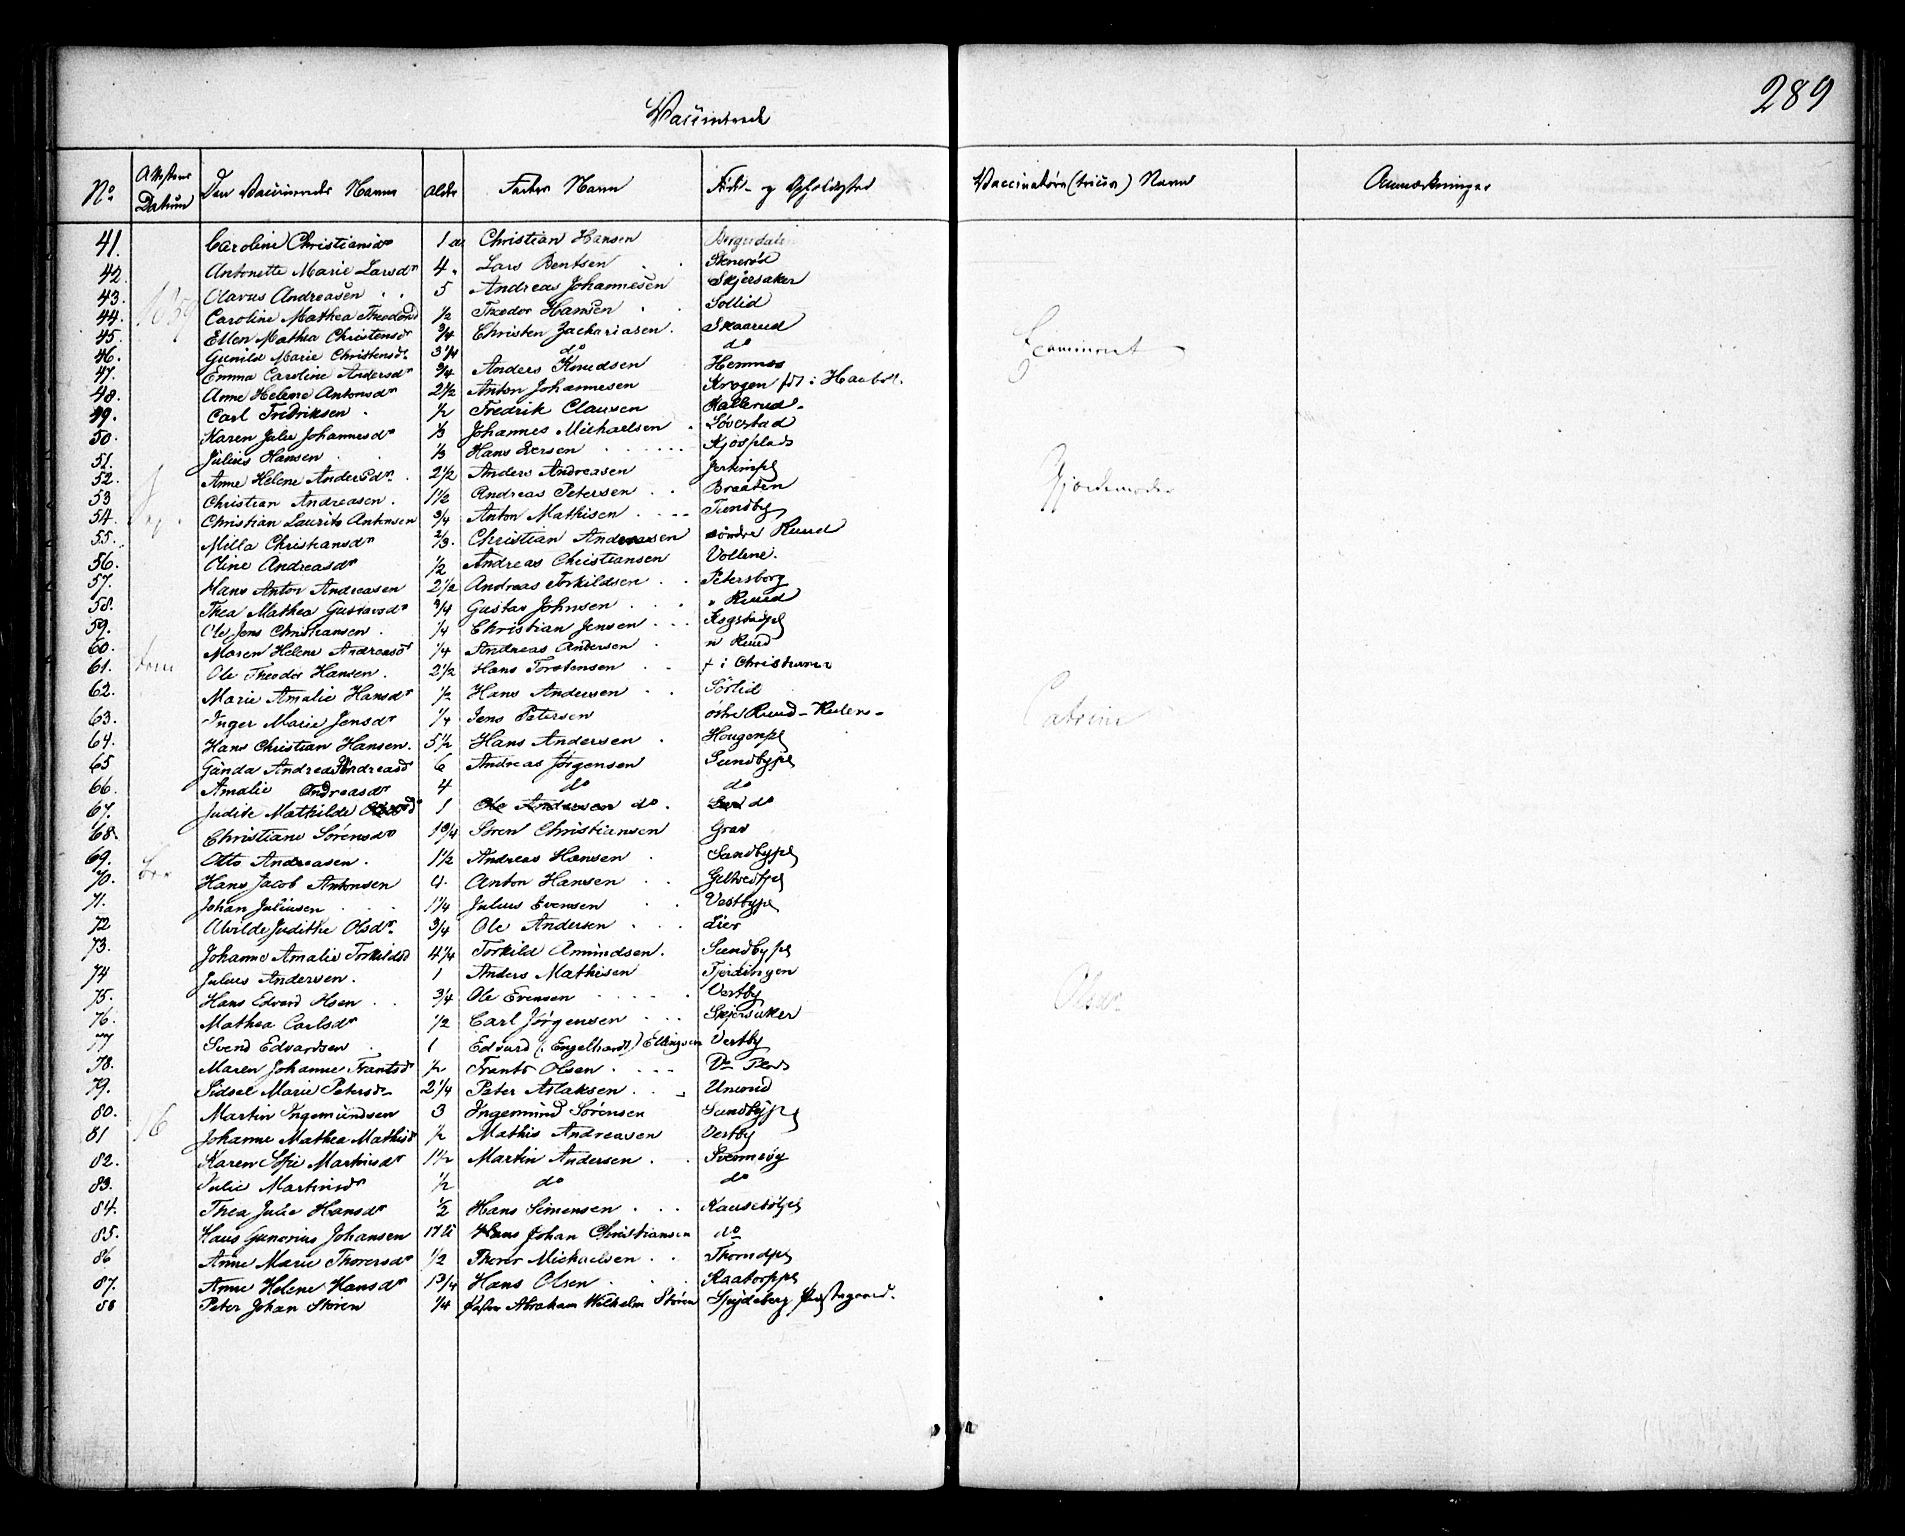 289
Vaccinerede
No
Attestens Datum
Den Vaccineredes Navn
Alder
Faders Navn
Føde- og Opholdssted
Vaccinatørs (tricens) Navn
Anmærkninger
41. Caroline Christiansdr 1 a Christian Hansen Bergsdalen
42. Antonette Marie Larsdr 4 Lars Bentsen
43. Olavus Andreasen 5 Andreas Johannesen Skjersaker
44. 1859 Caroline Mathea Theodorsd 1/2 Theodor Hansen Sollid
45. Ellen Mathea Christensdr 3/4 Christen Zachariasen Skaarud
46. Gunild Marie Christensdr 3 1/4 do do
47. Emma Caroline Andersdr 3/4 Anders Knudsen Hemnæs
48. Anne Helene Antonsdr 2 1/2 Anton Johannesen Krogen
49. Carl Fredriksen 1/2 Fredrik Clausen Kallerud
50. Karen Julie Johannesdr 1/3 Johannes Michaelsen Løvestad
51. Julius Hansen 1/3 Hans Iversen
52. Anne Helene Andersdr 2 1/2 Anders Andreasen
53 Christian Andreasen 1 1/2 Andreas Petersen Braaten
54. Christian Laurits Antonsen 3/4 Anton Mathisen Sundby
55. Milla Christiansdr 2/3 Christian Andreassen søndre Ruud
56. Oline Andreasdr 1/2 Andreas Christiansen Vollene.
57. Hans Anton Andreasen 2 1/2 Andreas Torkildsen Petersborg
58. Thea Mathea Gustavsdr 3/4 Gustav Johnsen " Ruud
59. Ole Jens Christiansen 1/4 Christian Jensen
60. Maren Helene Andreasdr 1/4 Andreas Andersen n Ruud
61. Ole Theodor Hansen 2 1/2 Hans Torstensen + i Christiania
62. Marie Amalie Hansdr 1/2 Hans Andersen Sørlid
63. Inger Marie Jensdr 1/4 Jens Petersen østre Ruud
64. Hans Christian Hansen 5 1/2 Hans Andersen Hougenpl
65 Andreasd 6 Andreas Jørgensen Sundbypl
66. Amalie Andreasdr 4 do do
67. Judite Mathilde 1 Ole Andersen do. do
68. Christiane Sørensdr 1 3/4 Søren Christiansen Grav
69. Otto Andreasen 1 1/2 Andreas Hansen Sundbypl
70. Hans Jacob Antonsen 4. Anton Hansen
71. Johan Juliusen 1 1/4 Julius Evensen Vestbypl
72 Alvilde Judithe Olsdr 3/4 Ole Andersen Lier
73. Johanne Amalie Torkildsd 4 1/4 Torkild Amundsen. Sundbypl
74 Julius Andersen 1 Anders Mathisen Fjerdingen
75. Hans Edvard Olsen 3/4 Ole Evensen Vestby
76. Mathea Carlsdr 1/2 Carl Jørgensen Skjersaker
77 Svend Edvardsen 1 Edvard (: Engelhardt) Ellingsen Vestby
78. Maren Johanne Frantsd 1/2 Frants Olsen
79. Sidsel Marie Petersdr 2 1/4 Peter Aslaksen
80. Martin Ingemundsen 3 Ingemund Sørensen Sundbypl
81 16 Johanne Mathea Mathisd 1/2 Mathis Andreasen Vestby
82. Karen Sofie Martinsdr 1 1/2 Martin Andersen
83. Julie Martinsdr 1/2 do do
84. Thea Julie Hansdr 1/2 Hans Simensen
85. Hans Gunerius Johansen Hans Johan Christiansen do
86 Anne Marie Thorersdr 1/2 Thorer Mickaelsen
87. Anne Helene Hansdr 1 3/4 Hans Olsen
88 Peter Johan Støren 1/4 Abraham Wilhelm Støren Spydeberg Præstegaard.
Gjordemoder
Catrine
Olsdr